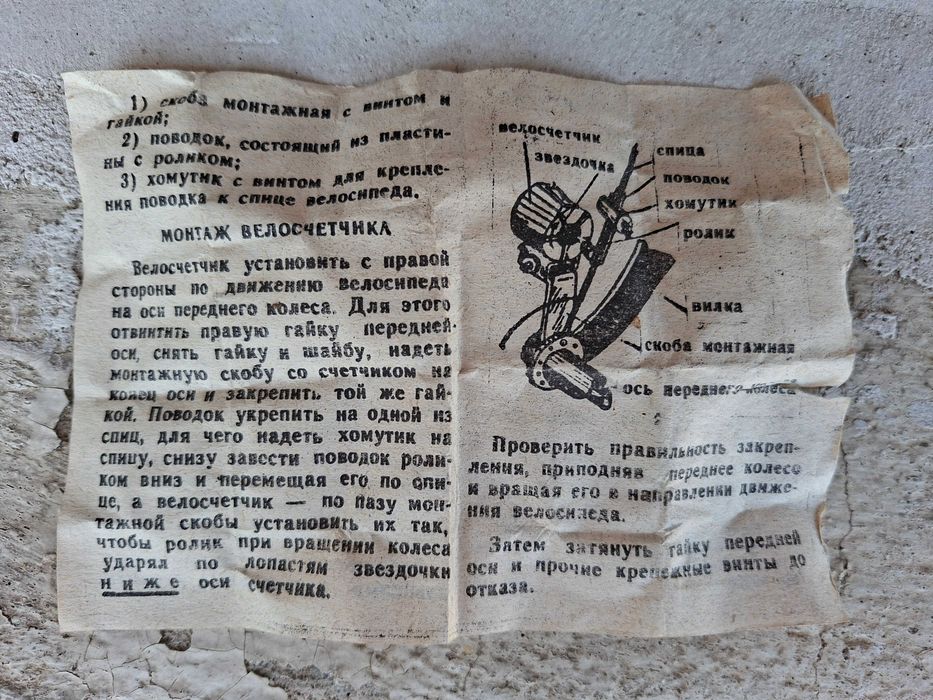 1) скоба монтажная с винтом и
гайкой;
2) поводок, состоящий из пласти-
ны с роликом;
3) хомутик с винтом для крепле-
ния поводка к спице велосипеда.
МОНТАЖ ВЕЛОСЧЕТЧИКА
Велосчетчик установить с правой
стороны по движению велосипеда
на оси переднего колеса. Для этого
отвинтить правую гайку передней
оси, снять гайку и шайбу, надеть
монтажную скобу со счетчиком на
конец оси и закрепить той же гай-
кой. Поводок укрепить на одной из
спиц, для чего надеть хомутик на
спицу, снизу завести поводок роли-
ком вниз и перемещая его по спи-
це, а велосчетчик — по пазу мон-
тажной скобы установить их так,
чтобы ролик при вращении колеса
ударял по лопастям звездочки
ниже оси счетчика.
велосчетчик
звездочка
спица
поводок
хомутик
ролик
вилка
скоба монтажная
ось переднего колеса
Проверить правильность закреп-
ления, приподняв переднее колесо
и вращая его в направлении движе-
ния велосипеда.
Затем затянуть гайку передней
оси и прочие крепежные винты до
отказа.